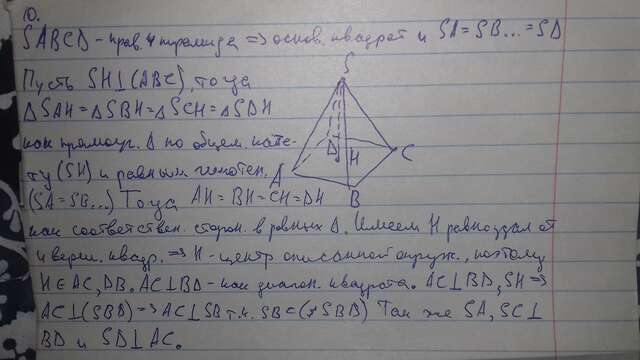 10.
SABCD - прав. 4 пирамида => основ. квадрат и SA=SB...=SD
Пусть SH⊥(ABC), тогда
△SAH=△SBH=△SCH=△SDH
как прямоуг. △ по общем. кате-
ту (SH) и равным гипотен.
(SA=SB...) Тогда AH=BH=CH=DH
как соответствен. сторон. в равных △. Имеем H равноудал от
4 верш. квадр. => H - центр описанной окруж., поэтому
H∈AC, DB. AC⊥BD - как диагон. квадрата. AC⊥BD, SH =>
AC⊥(SBD) => AC⊥SB т.к. SB⊂(SBD) Так же SA, SC⊥
BD и SD⊥AC.
S
A
B
C
D
H